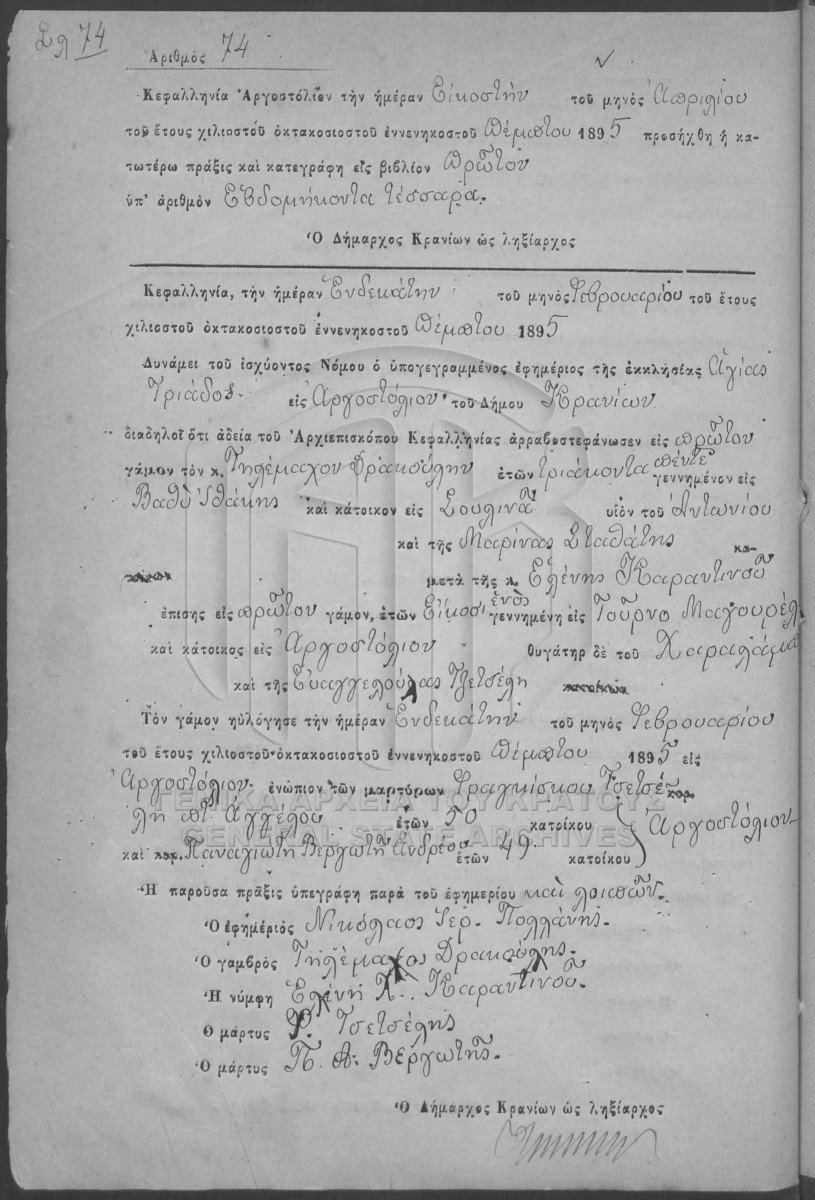 Σλ 74
Ἀριθμὸς 74
Κεφαλληνία Ἀργοστόλιον τὴν ἡμέραν Εἰκοστὴν τοῦ μηνὸς Ἀπριλίου
τοῦ ἔτους χιλιοστοῦ ὀκτακοσιοστοῦ ἐννενηκοστοῦ Πέμπτου 1895 προσήχθη ἡ κα-
τωτέρω πρᾶξις καὶ κατεγράφη εἰς βιβλίον Πρῶτον
ὑπ' ἀριθμὸν Ἑβδομήκοντα τέσσαρα.
Ὁ Δήμαρχος Κρανίων ὡς ληξίαρχος
Κεφαλληνία, τὴν ἡμέραν Ἑνδεκάτην τοῦ μηνὸς Φεβρουαρίου τοῦ ἔτους
χιλιοστοῦ ὀκτακοσιοστοῦ ἐννενηκοστοῦ Πέμπτου 1895
Δυνάμει τοῦ ἰσχύοντος Νόμου ὁ ὑπογεγραμμένος ἐφημέριος τῆς ἐκκλησίας Ἁγίας
Τριάδος. εἰς Ἀργοστόλιον τοῦ Δήμου Κρανίων
διαδηλοῖ ὅτι ἀδεία τοῦ Ἀρχιεπισκόπου Κεφαλληνίας ἀρραβοστεφάνωσεν εἰς πρῶτον
γάμον τὸν κ. Τηλέμαχον Δρακούλην ἐτῶν τριάκοντα πέντε γεννημένον εἰς
Βαθὺ Ἰθάκης καὶ κάτοικον εἰς Σουλινᾶ υἱὸν τοῦ Ἀντωνίου
καὶ τῆς Μαρίνας Σταθάτης κα-
τοίκων μετὰ τῆς κ. Ἑλένης Καραντινοῦ
ἐπίσης εἰς πρῶτον γάμον, ἐτῶν Εἴκοσι ἑνὸς γεννημένη εἰς Τοῦρνο Μαγουρέλ
καὶ κάτοικος εἰς Ἀργοστόλιον θυγάτηρ δὲ τοῦ Χαραλάμπ
καὶ τῆς Εὐαγγελούλας Τζετσέλη κατοίκων
Τὸν γάμον ηὐλόγησε τὴν ἡμέραν Ἑνδεκάτην τοῦ μηνὸς Φεβρουαρίου
τοῦ ἔτους χιλιοστοῦ ὀκτακοσιοστοῦ ἐννενηκοστοῦ Πέμπτου 1895 εἰς
Ἀργοστόλιον ἐνώπιον τῶν μαρτύρων Φραγκίσκου Τσετσέ κυρ.
λη π. Ἀγγέλου ἐτῶν 50 κατοίκου Ἀργοστόλιον
καὶ κυρ. Παναγιώτη Βεργωτῆ Ἀνδρέου ἐτῶν 49 κατοίκου
Ἡ παροῦσα πρᾶξις ὑπεγράφη παρὰ τοῦ ἐφημερίου καὶ λοιπῶν.
Ὁ ἐφημέριὸς Νικόλαος Ἱερ. Πολλάνης.
Ὁ γαμβρὸς Τηλέμαχος Δρακούλης.
Ἡ νύμφη Ἑλένη Χ. Καραντινοῦ.
Ὁ μάρτυς Φ. Τσετσέλης
Ὁ μάρτυς Π. Α. Βεργωτῆς.
Ὁ Δήμαρχος Κρανίων ὡς ληξίαρχος
ΓΕΝΙΚΑ ΑΡΧΕΙΑ ΤΟΥ ΚΡΑΤΟΥΣ
GENERAL STATE ARCHIVES